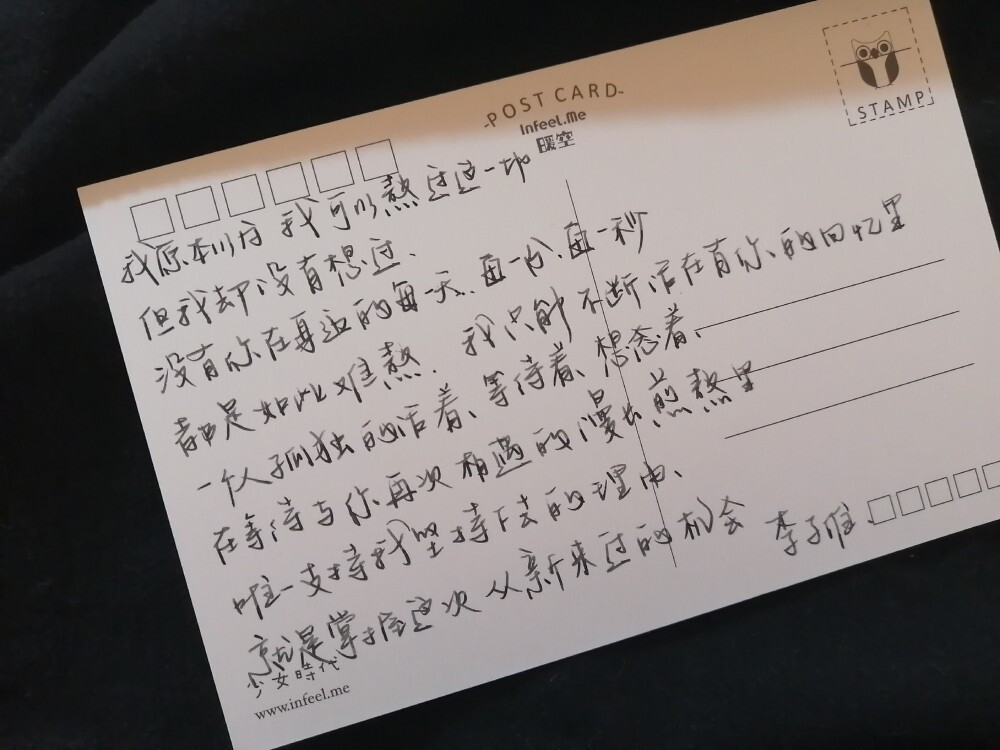 -POST CARD-
Infeel.Me
暖空
STAMP
我原本以为 我可以熬过这一切
但我却没有想过、
没有你在身边的每一天、每一分、每一秒
都是如此难熬. 我只能不断活在有你的回忆里
一个人孤独的活着、等待着、想念着、
在等待与你再次相遇的漫长煎熬里
唯一支持我坚持下去的理由、
就是掌握这次从新来过的机会 李子维、
少女時代
www.infeel.me